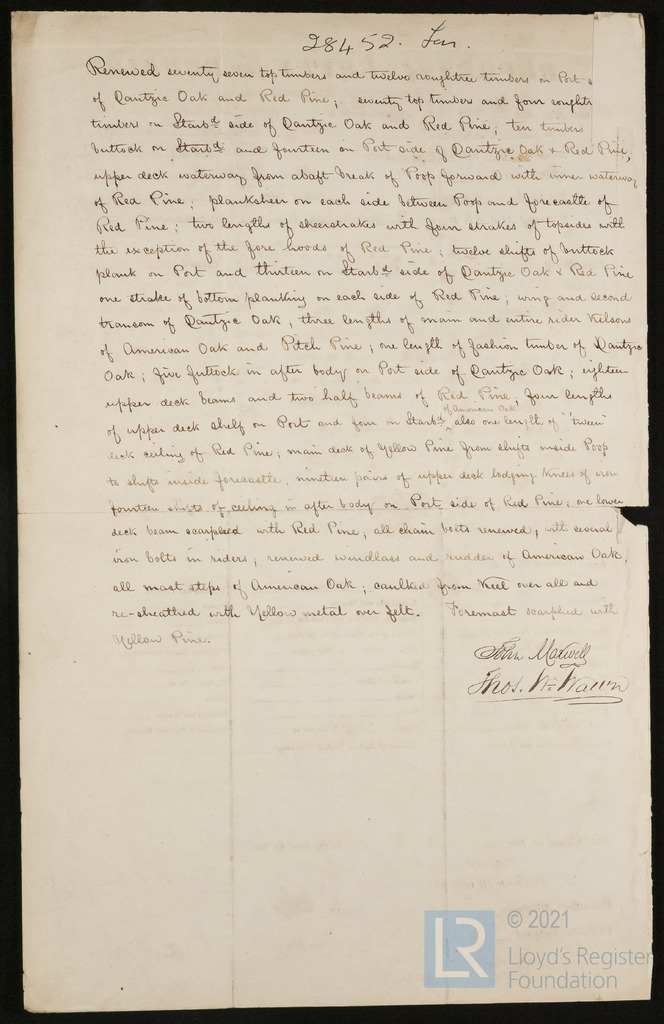 28452. Lon.
Renewed seventy seven top timbers and twelve roughtree timbers on Port s
of Dantzic Oak and Red Pine; seventy top timbers and four rought
timbers on Starbd side of Dantzic Oak and Red Pine; ten timbers
buttock on Starbd and fourteen on Port side of Dantzic Oak & Red Pine,
upper deck waterway from abaft break of Poop forward with inner waterway
of Red Pine; planksheer on each side between Poop and forecastle of
Red Pine; two lengths of sheerstrakes with four strakes of topsides with
the exception of the fore hoods of Red Pine; twelve shifts of buttock
plank on Port and thirteen on Starbd side of Dantzic Oak & Red Pine
one strake of bottom planking on each side of Red Pine; wing and second
transom of Dantzic Oak; three lengths of main and entire rider Kelsons
of American Oak and Pitch Pine; one length of fashion timber of Dantzic
Oak; five futtock in after body on Port side of Dantzic Oak; eighteen
upper deck beams and two half beams of Red Pine; four lengths
of American Oak
of upper deck shelf on Port and four on Starbd also one length of "tween
deck ceiling of Red Pine; main deck of Yellow Pine from shifts inside Poop
to shifts inside forecastle, nineteen pairs of upper deck lodging knees of iron
fourteen shifts of ceiling in after body on Port side of Red Pine; one lower
deck beam scarphed with Red Pine; all chain bolts renewed, with several
iron bolts in riders; renewed windlass and rudder of American Oak,
all mast steps of American Oak; caulked from Keel over all and
re-sheathed with Yellow metal over felt. Foremast scarphed with
Yellow Pine.
John Maxwell
Thos. Wm Wawn
LR
© 2021
Lloyd's Register
Foundation